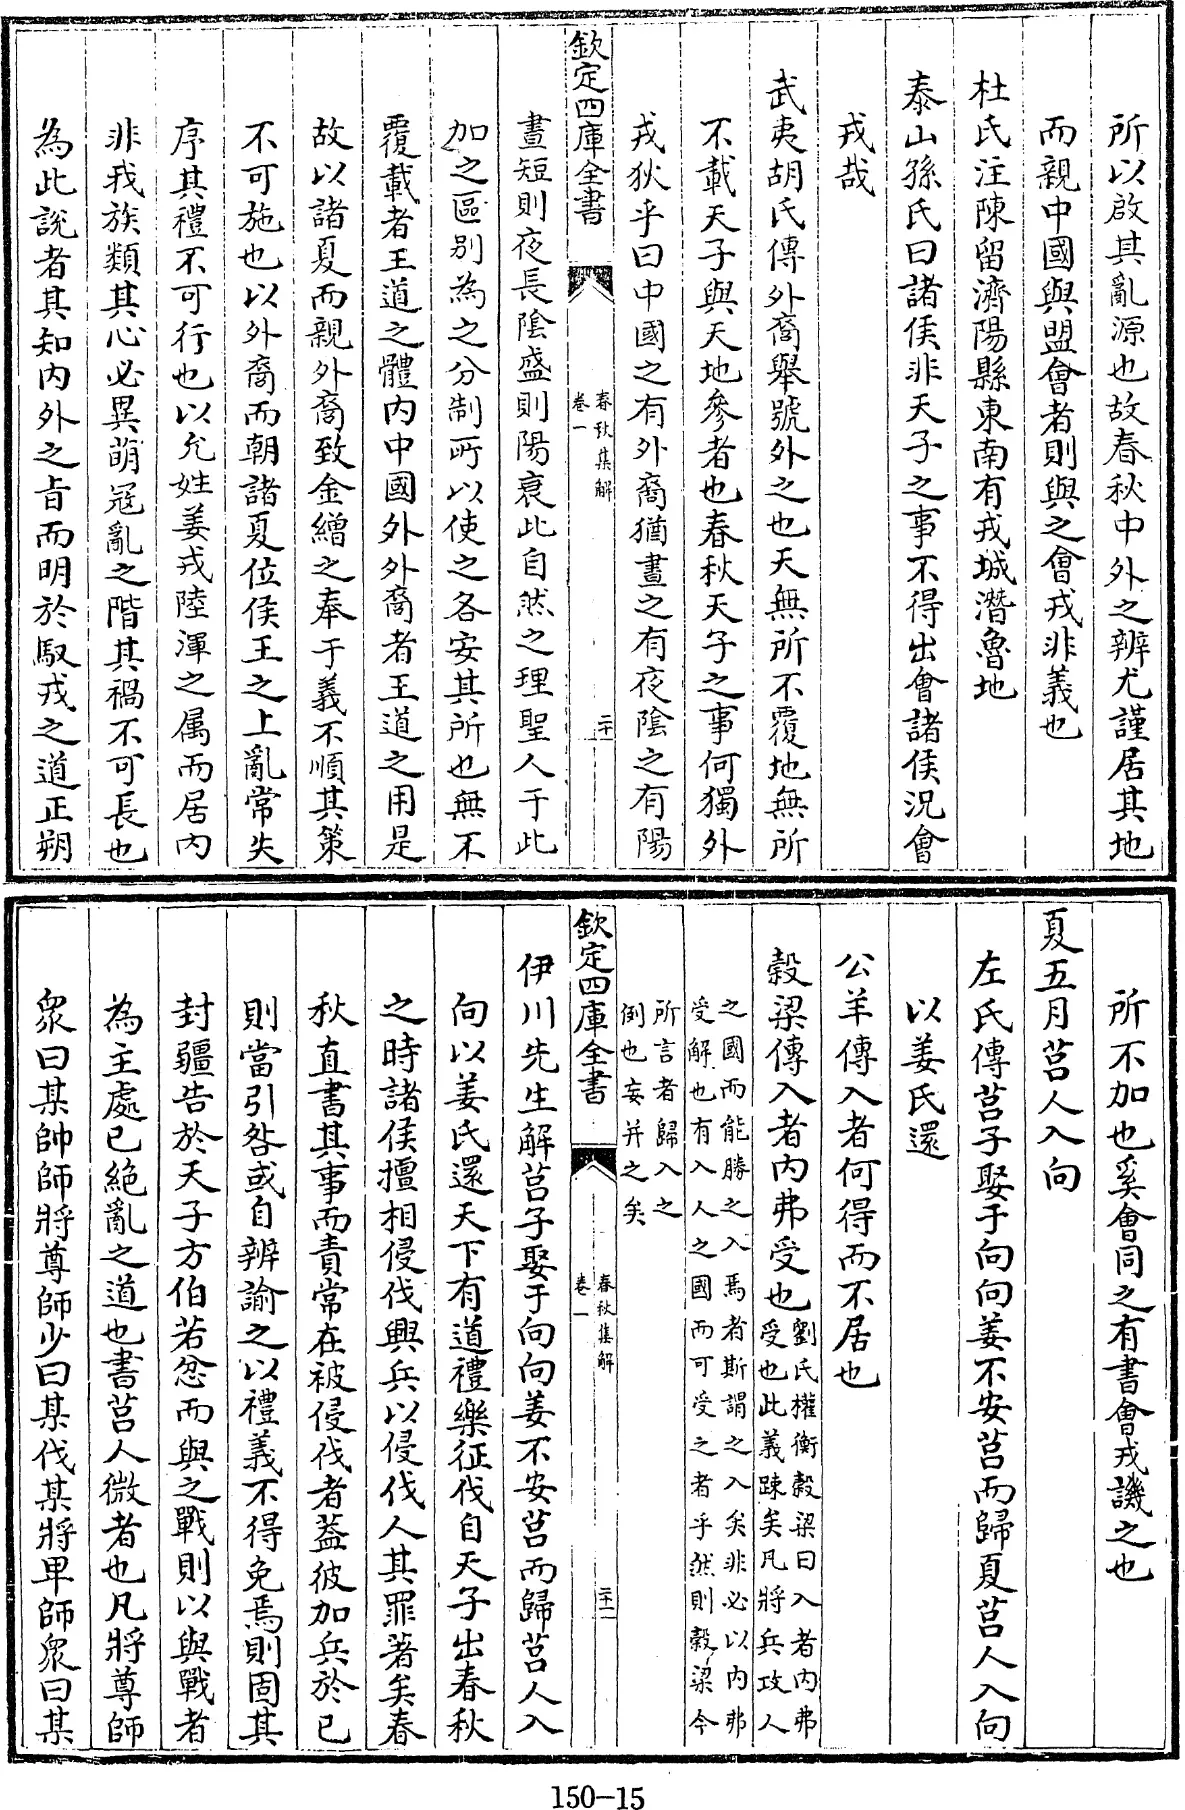 所以啟其亂源也故春秋中外之辨尤謹居其地
而親中國與盟會者則與之會戎非義也
杜氏注陳留濟陽縣東南有戎城潛魯地
泰山孫氏曰諸侯非天子之事不得出會諸侯況會
戎哉
武夷胡氏傳外裔舉號外之也天無所不覆地無所
不載天子與天地參者也春秋天子之事何獨外
戎狄乎曰中國之有外裔猶晝之有夜陰之有陽
欽定四庫全書
春秋集解
卷一
二十
晝短則夜長陰盛則陽衰此自然之理聖人于此
加之區別為之分制所以使之各安其所也無不
覆載者王道之體內中國外外裔者王道之用是
故以諸夏而親外裔致金繒之奉于義不順其策
不可施也以外裔而朝諸夏位侯王之上亂常失
序其禮不可行也以允姓姜戎陸渾之屬而居內
非我族類其心必異萌冦亂之階其禍不可長也
為此說者其知內外之旨而明於馭戎之道正朔
所不加也奚會同之有書會戎譏之也
夏五月莒人入向
左氏傳莒子娶于向向姜不安莒而歸夏莒人入向
以姜氏還
公羊傳入者何得而不居也
穀梁傳入者內弗受也劉氏權衡穀梁曰入者內弗
受也此義踈矣凡將兵攻人
之國而能勝之入焉者斯謂之入矣非必以內弗
受解也有入人之國而可受之者乎然則穀梁今
所言者歸入之
倒也妄并之矣
欽定四庫全書
春秋集解
卷一
二十一
伊川先生解莒子娶于向向姜不安莒而歸莒人入
向以姜氏還天下有道禮樂征伐自天子出春秋
之時諸侯擅相侵伐興兵以侵伐人其罪著矣春
秋直書其事而責常在被侵伐者蓋彼加兵於己
則當引咎或自辨諭之以禮義不得免焉則固其
封疆告於天子方伯若忿而與之戰則以與戰者
為主處己絕亂之道也書莒人微者也凡將尊師
衆曰某帥師將尊師少曰某伐某將卑師衆曰某
150-15